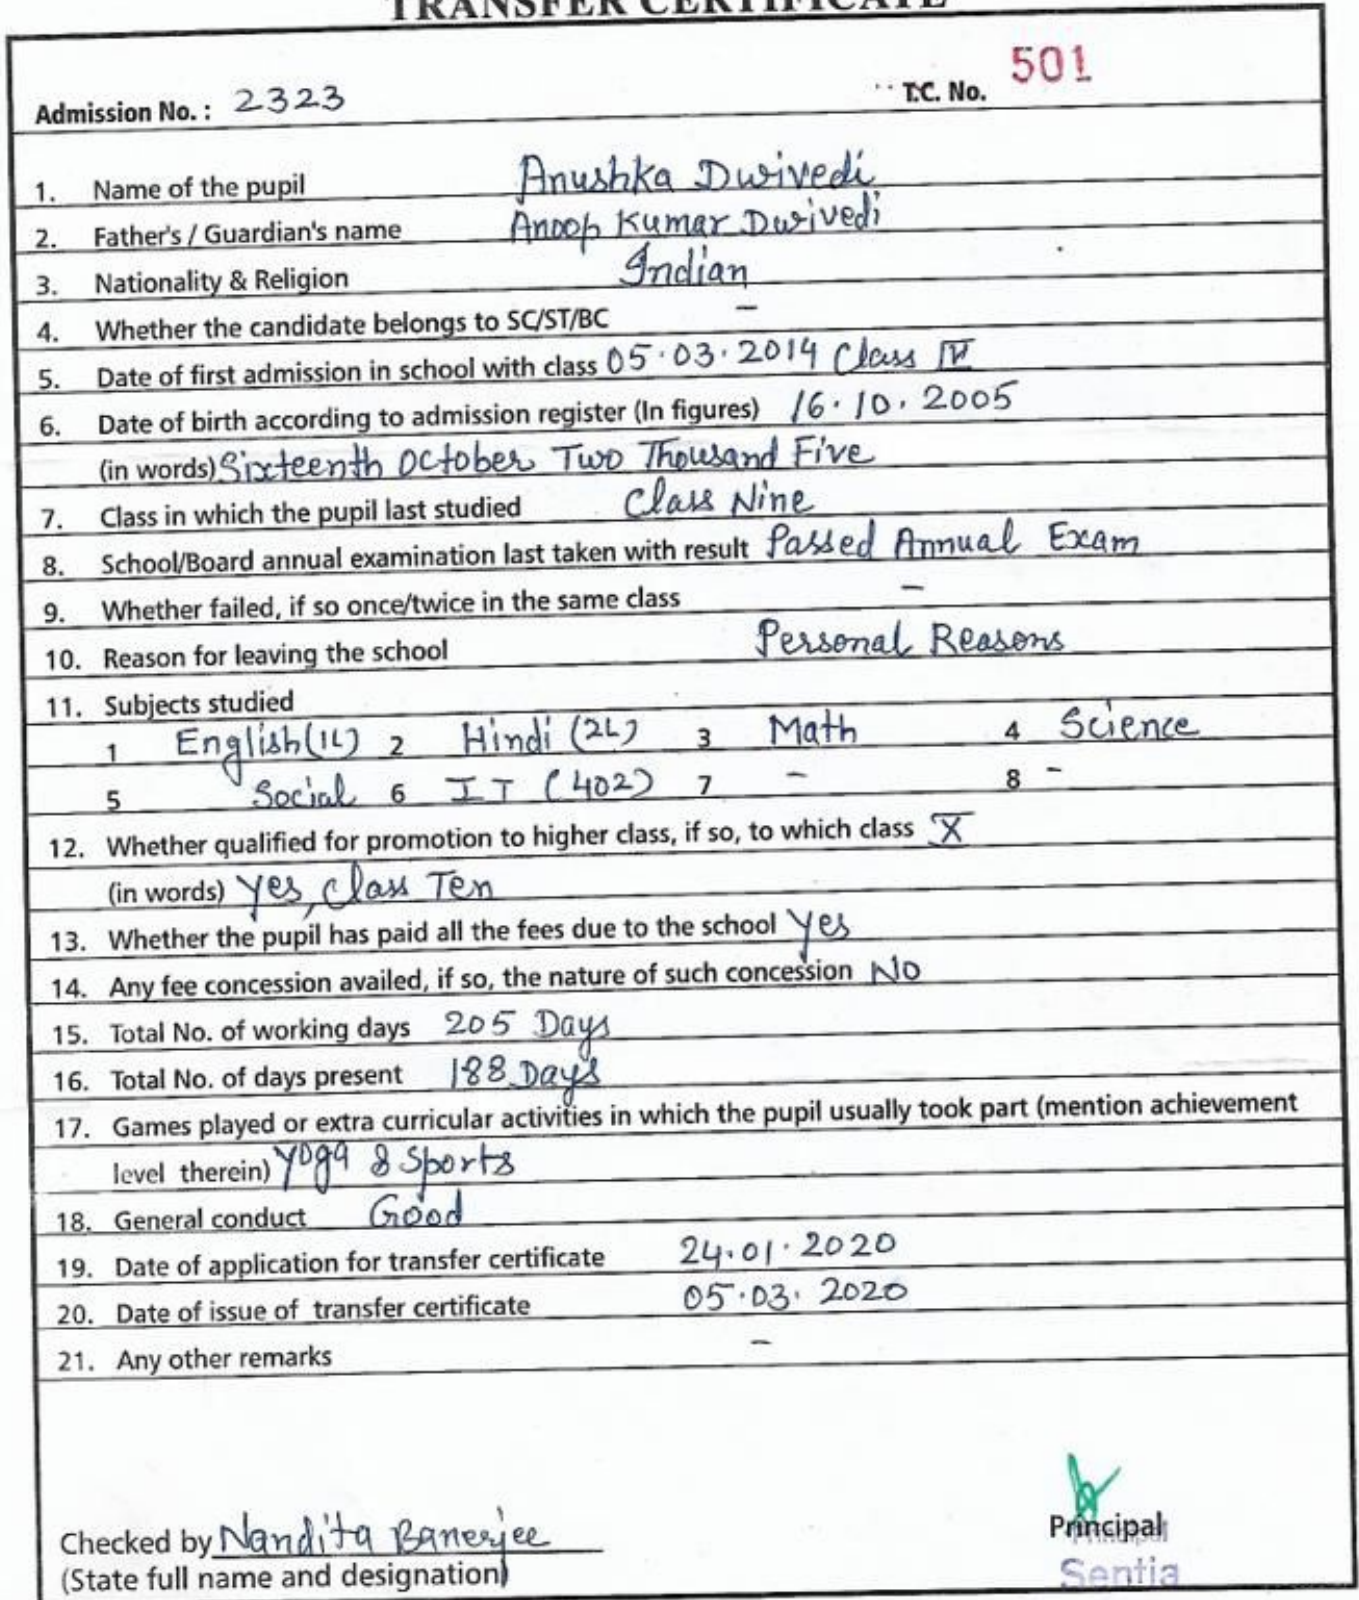 TRANSFER CERTIFICATE
Admission No. : 2323 T.C. No. 501
1. Name of the pupil Anushka Dwivedi
2. Father's / Guardian's name Anoop Kumar Dwivedi
3. Nationality & Religion Indian
4. Whether the candidate belongs to SC/ST/BC -
5. Date of first admission in school with class 05.03.2014 Class IV
6. Date of birth according to admission register (In figures) 16.10.2005
(in words) Sixteenth October Two Thousand Five
7. Class in which the pupil last studied Class Nine
8. School/Board annual examination last taken with result Passed Annual Exam
9. Whether failed, if so once/twice in the same class -
10. Reason for leaving the school Personal Reasons
11. Subjects studied
1 English(1L) 2 Hindi (2L) 3 Math 4 Science
5 Social 6 IT (402) 7 - 8 -
12. Whether qualified for promotion to higher class, if so, to which class X
(in words) Yes, Class Ten
13. Whether the pupil has paid all the fees due to the school Yes
14. Any fee concession availed, if so, the nature of such concession No
15. Total No. of working days 205 Days
16. Total No. of days present 188 Days
17. Games played or extra curricular activities in which the pupil usually took part (mention achievement
level therein) Yoga & Sports
18. General conduct Good
19. Date of application for transfer certificate 24.01.2020
20. Date of issue of transfer certificate 05.03.2020
21. Any other remarks -
Checked by Nandita Banerjee
(State full name and designation)
Principal
Principal
Sentia